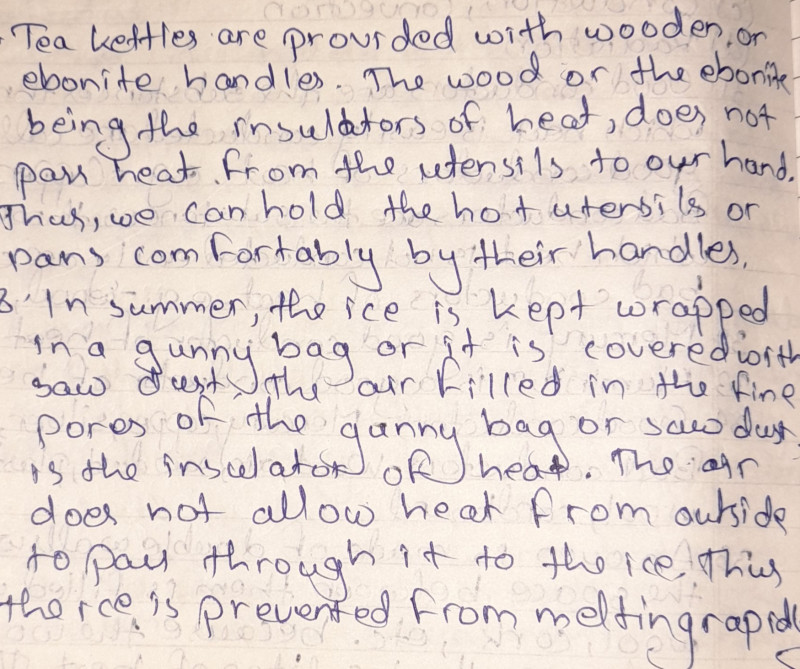 Tea kettles are provided with wooden, or
ebonite handles. The wood or the ebonite
being the insulators of heat, does not
pass heat from the utensils to our hand.
Thus, we can hold the hot utensils or
pans comfortably by their handles.
3. In summer, the ice is kept wrapped
in a gunny bag or it is covered with
saw dust, the air filled in the fine
pores of the gunny bag or saw dust,
is the insulator of heat. The air
does not allow heat from outside
to pass through it to the ice. Thus
the ice is prevented from melting rapidl